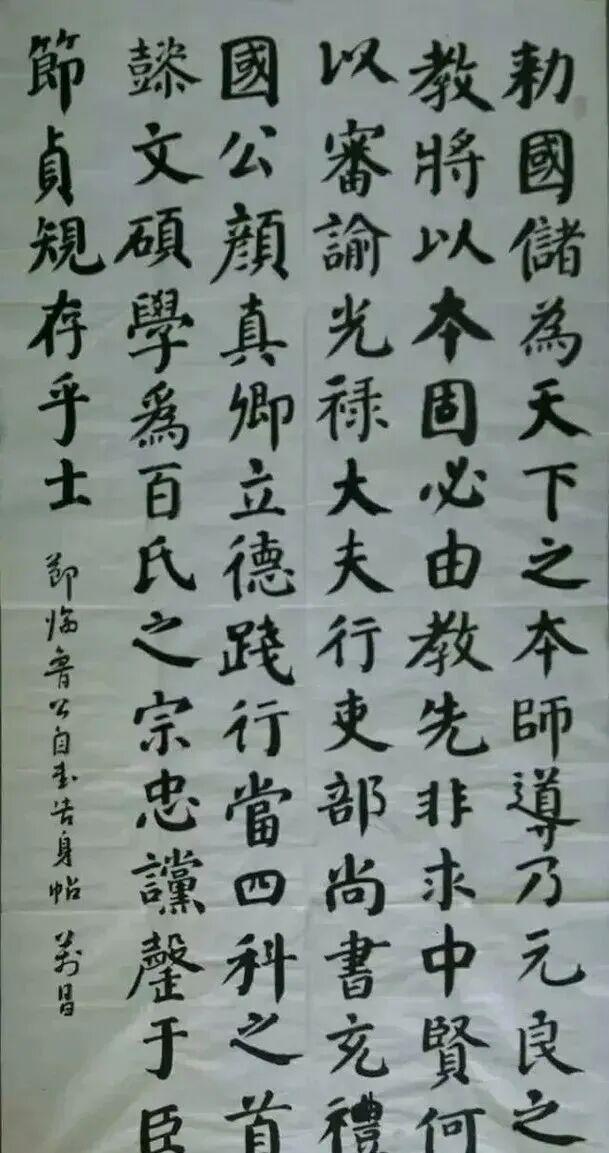 勑國儲為天下之本師導乃元良之
教將以本固必由教先非求中賢何
以審諭光禄大夫行吏部尚書充禮
國公顔真卿立德踐行當四科之首
懿文碩學爲百氏之宗忠讜罄于臣
節貞規存乎士
節临魯公自書告身帖 萬昌